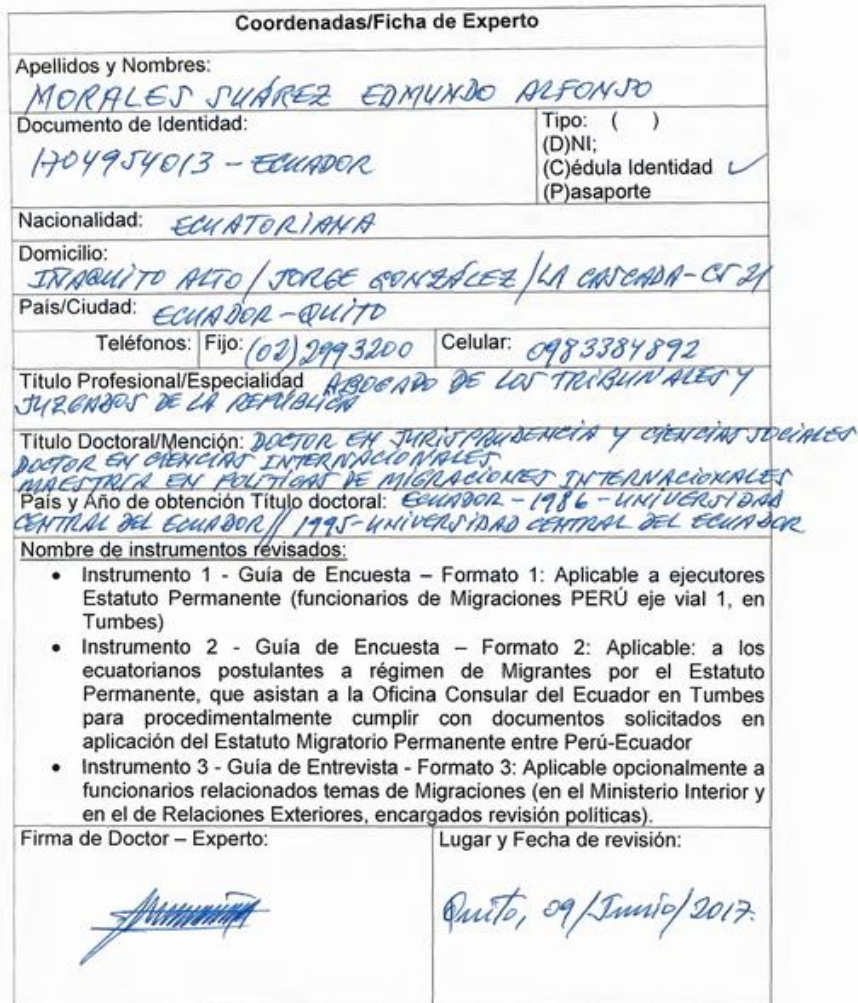 Coordenadas/Ficha de Experto
Apellidos y Nombres:
MORALES SUÁREZ EDMUNDO ALFONSO
Documento de Identidad:
1704954013 - ECUADOR
Tipo: ( )
(D)NI;
(C)édula Identidad ✓
(P)asaporte
Nacionalidad: ECUATORIANA
Domicilio:
IÑAQUITO ALTO / JORGE GONZÁLEZ / LA CASCADA - CS 21
País/Ciudad: ECUADOR - QUITO
Teléfonos: Fijo: (02) 2993200 Celular: 0983384892
Título Profesional/Especialidad ABOGADO DE LOS TRIBUNALES Y
JUZGADOS DE LA REPÚBLICA
Título Doctoral/Mención: DOCTOR EN JURISPRUDENCIA Y CIENCIAS SOCIALES
DOCTOR EN CIENCIAS INTERNACIONALES
MAESTRÍA EN POLÍTICAS DE MIGRACIONES INTERNACIONALES
País y Año de obtención Título doctoral: ECUADOR - 1986 - UNIVERSIDAD
CENTRAL DEL ECUADOR // 1995 - UNIVERSIDAD CENTRAL DEL ECUADOR
Nombre de instrumentos revisados:
• Instrumento 1 - Guía de Encuesta – Formato 1: Aplicable a ejecutores
Estatuto Permanente (funcionarios de Migraciones PERÚ eje vial 1, en
Tumbes)
• Instrumento 2 - Guía de Encuesta – Formato 2: Aplicable: a los
ecuatorianos postulantes a régimen de Migrantes por el Estatuto
Permanente, que asistan a la Oficina Consular del Ecuador en Tumbes
para procedimentalmente cumplir con documentos solicitados en
aplicación del Estatuto Migratorio Permanente entre Perú-Ecuador
• Instrumento 3 - Guía de Entrevista - Formato 3: Aplicable opcionalmente a
funcionarios relacionados temas de Migraciones (en el Ministerio Interior y
en el de Relaciones Exteriores, encargados revisión políticas).
Firma de Doctor – Experto:
Lugar y Fecha de revisión:
Quito, 09/Junio/2017.